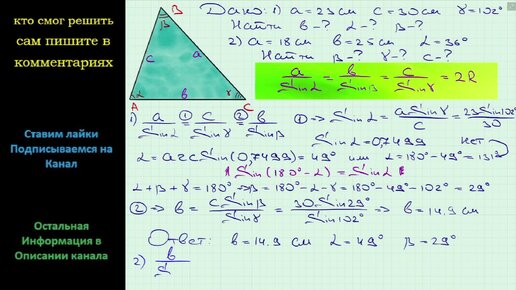 кто смог решить
сам пишите в
комментариях
Ставим лайки
Подписываемся на
Канал
Остальная
Информация в
Описании канала
B
β
c
a
α
b
γ
A
C
Дано: 1) a = 23 см c = 30 см γ = 102°
Найти b - ? α - ? β - ?
2) a = 18 см b = 25 см α = 36°
Найти β - ? γ - ? c - ?
a/Sinα = b/Sinβ = c/Sinγ = 2R
1) a/Sinα ①= c/Sinγ ②= b/Sinβ ① => Sinα = aSinγ/c = 23Sin102°/30
Sinα = 0,7499 Нет
α = arcSin(0,7499) = 49° или α = 180° - 49° = 131°
! Sin(180° - α) = Sinα !
α + β + γ = 180° => β = 180° - α - γ = 180° - 49° - 102° = 29°
② => b = cSinβ/Sinγ = 30·Sin29°/Sin102° => b = 14.9 см
Ответ: b = 14.9 см α = 49° β = 29°
2) b/S